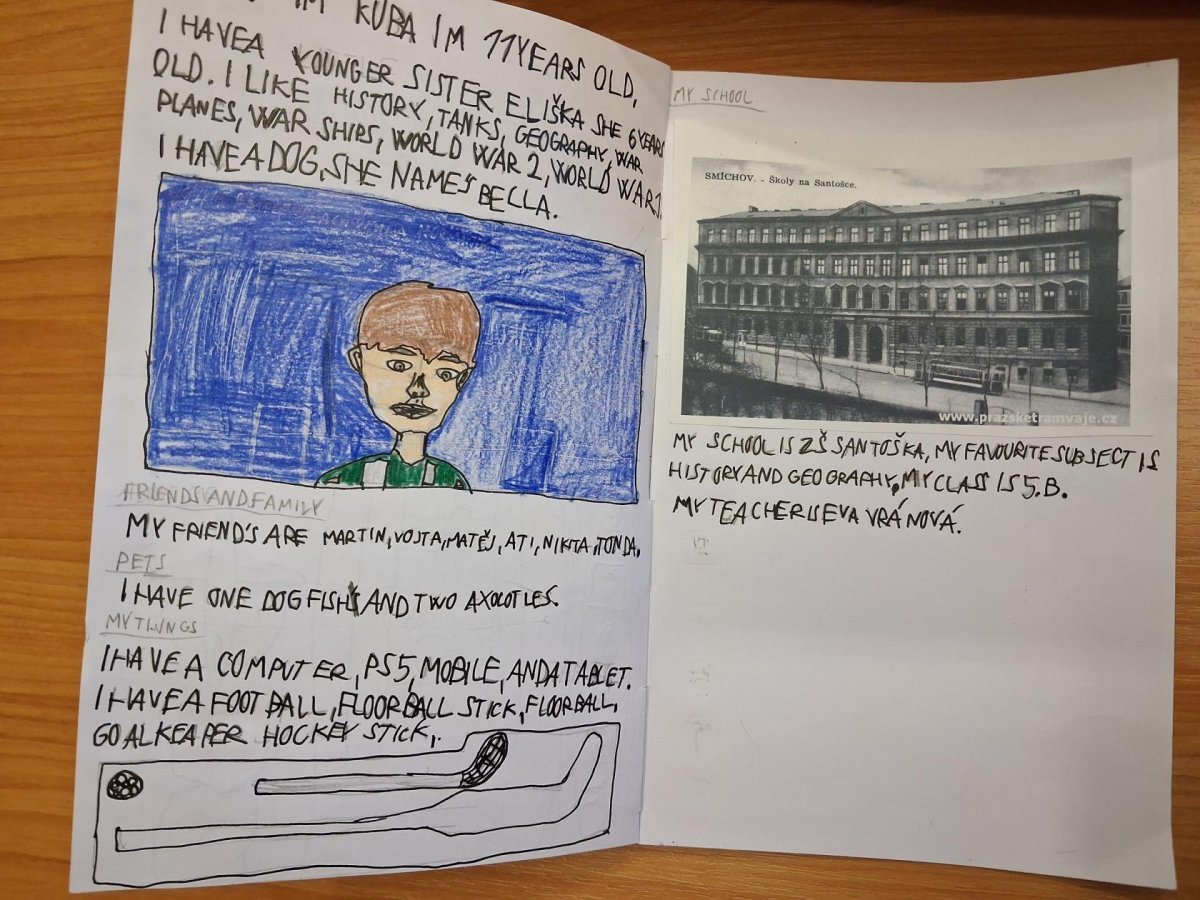 IM KUBA IM 11 YEARS OLD,
I HAVE A YOUNGER SISTER ELIŠKA SHE 6 YEARS
OLD. I LIKE HISTORY, TANKS, GEOGRAPHY, WAR
PLANES, WAR SHIPS, WORLD WAR 2, WORLD WAR 1.
I HAVE A DOG, SHE NAMES BELLA.
FRIENDS AND FAMILY
MY FRIEND'S ARE MARTIN, VOJTA, MATĚJ, ATI, NIKITA, TONDA,
PETS
I HAVE ONE DOG FISH AND TWO AXOLOTLES.
MY THINGS
I HAVE A COMPUTER, PS5, MOBILE, AND A TABLET.
I HAVE A FOOTBALL, FLOORBALL STICK, FLOORBALL,
GOALKEAPER HOCKEY STICK,.
MY SCHOOL
SMÍCHOV. - Školy na Santošce.
www.prazsketramvaje.cz
MY SCHOOL IS ZŠ SANTOŠKA, MY FAVOURITE SUBSECT IS
HISTORY AND GEOGRAPHY, MY CLASS IS 5.B.
MY TEACHER IS EVA VRÁNOVÁ.